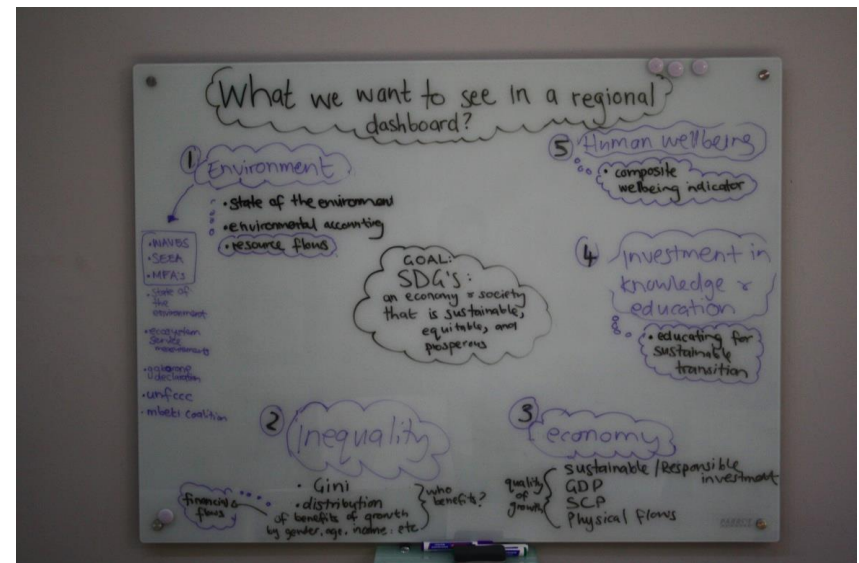 What we want to see in a regional
dashboard?
1
Environment
• state of the environment
• environmental accounting
• resource flows
• WAVES
• SEEA
• MPA's
• state of
the
environment
• ecosystem
service
• gaborone
declaration
• unfccc
• mbeki coalition
GOAL:
SDG's:
an economy & society
that is sustainable,
equitable, and
prosperous
5
Human wellbeing
• composite
wellbeing indicator
4
Investment in
knowledge &
education
• educating for
sustainable
transition
2
Inequality
• Gini
• distribution
of benefits of growth
by gender, age, income, etc
who
benefits?
financial
flows
3
economy
quality
of
growth
sustainable / Responsible
investment
GDP
SCP
Physical flows